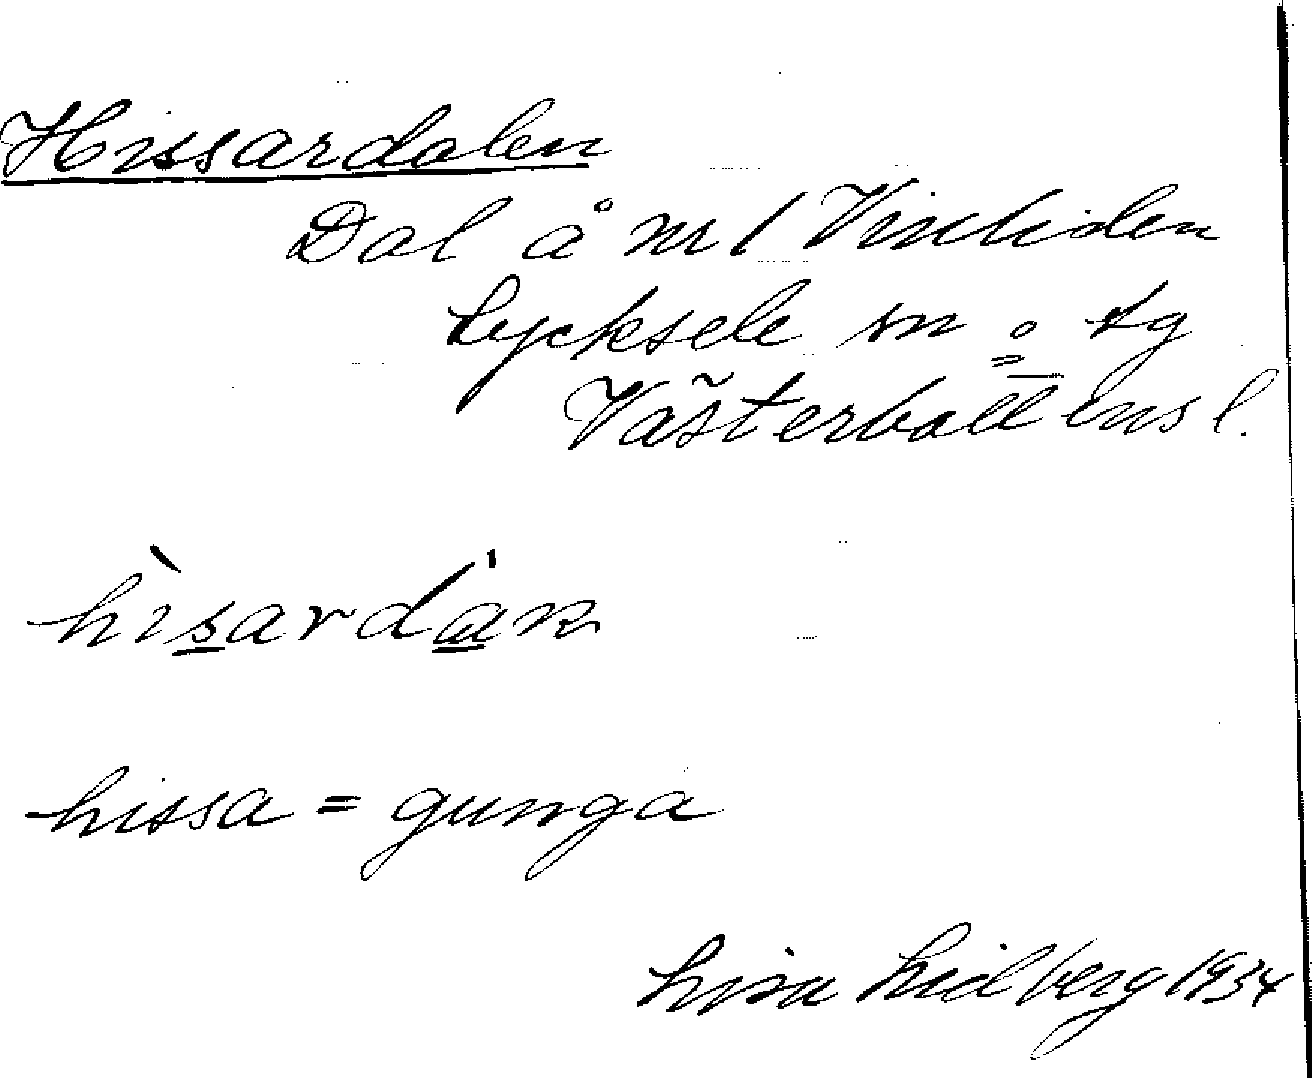 Hissardalen
Dal å nr 1 Vinliden
Lycksele sn o. tg
Västerbottens l.
hìsardan
hissa = gunga
Lisa Lidberg 1934